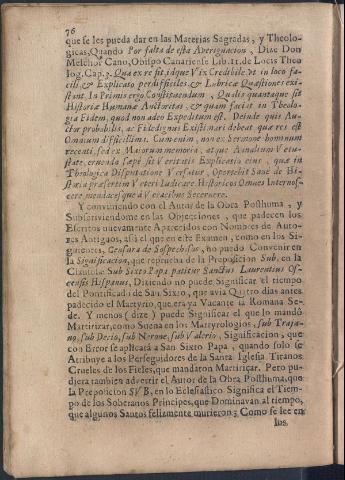 76
que se les pueda dar en las Materias Sagradas, y Theolo-
gicas, Quando Por falta de esta Averiguacion, Dize Don
Melchor Cano, Obispo Canariense Lib. 11. de Locis Theo
log. Cap. 3. Qua ex re sit, idque Vix Credibile vt in loco fa-
cili & Explicato perdifficiles, & Lubricæ Quæstiones exi-
stant. In Primis ergo Constituendum, Qualis quantaque sit
Historiæ Humanæ Auctoritas, & quam faciat in Theolo-
gia Fidem, quod non adeo Expeditum est. Deinde quis Au-
ctor probabilis, ac Fidedignus Existimari debeat quæ res est
Omnium difficillima. Cum enim, non ex Sermone hominum
recenti, sed ex Maiorum memoria, atque Annalium Vetu-
state, eruenda sæpe sit Veritatis Explicatio eius, quæ in
Theologica Disputatione Versatur, Oportebit Sane de Hi-
storia præsertim Veteri Iudicare Historicos Omnes Internos-
cere, mendaces que à Veracibus Secernere.
Y conviniendo con el Autor de la Obra Posthuma, y
Subscriviendome en las Objecciones, que padecen los
Escritos nuevamente Aparecidos con Nombres de Auto-
res Antiguos, assi el que en este Examen, como en los Si-
guientes, Censura de Sospechosos, no puedo Convenir en
la Significacion, que reprueba de la Preposicion Sub, en la
Clausula: Sub Sixto Papa patitur Sanctus Laurentius Os-
censis Hispanus, Diziendo no puede Significar el tiempo
del Pontificado de San Sixto, que avia Quatro dias antes
padecido el Martyrio, que era ya Vacante la Romana Se-
de. Y menos (dize) puede Significar el que lo mandò
Martirizar, como Suena en los Martyrologios, sub Traja-
no, sub Decio, sub Nerone, sub Valerio, Significacion, que
con Error se aplicarà a San Sixto Papa, quando solo se
Atribuye a los Perseguidores de la Santa Iglesia, Tiranos
Crueles de los Fieles, que mandaron Martiriçar. Pero pu-
diera tambien advertir el Autor de la Obra Posthuma, que
la Preposicion SVB, en lo Eclesiastico Significa el Tiem-
po de los Soberanos Principes, que Dominavan al tiempo,
que algunos Santos felizmente murieron; Como se lee en
los